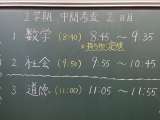 2学期 中間考査 2日目
1 数学 (8:40) 8:45 〜 9:35
2 社会 (9:50) 9:55 〜 10:45
3 道徳 (11:00) 11:05 〜 11:55